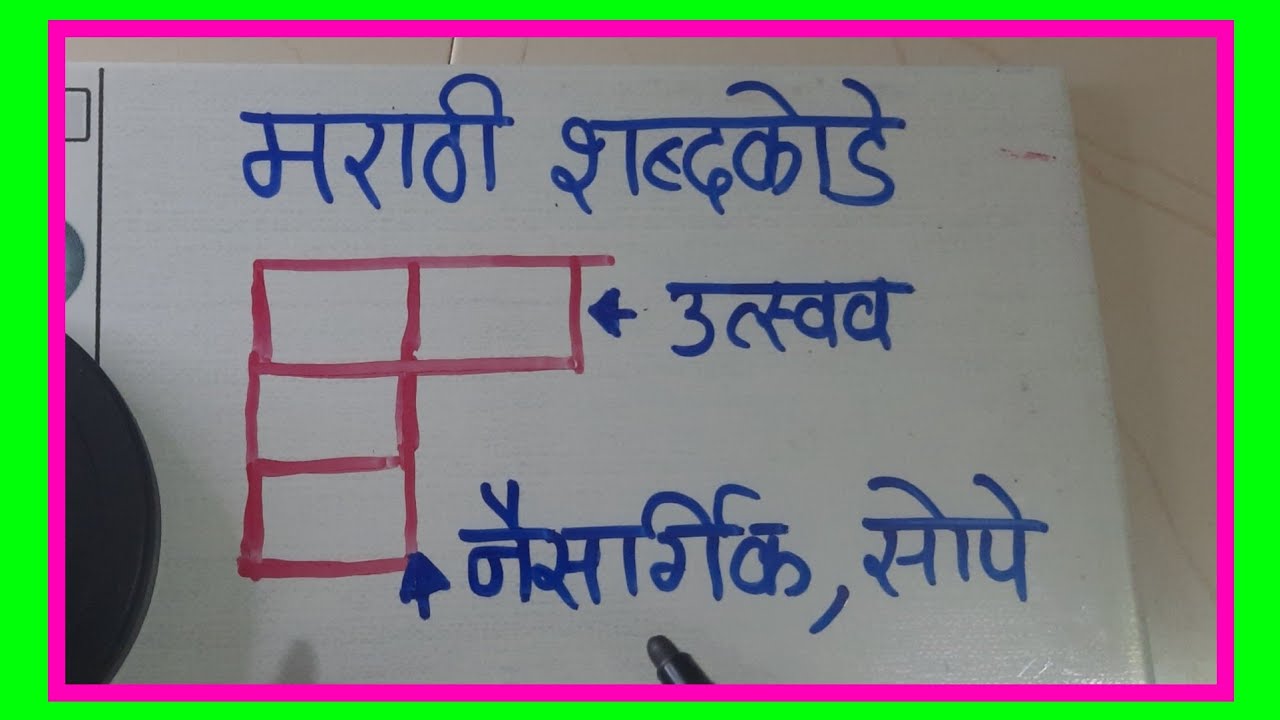 मराठी शब्दकोडे
उत्स्वव
नैसर्गिक, सोपे